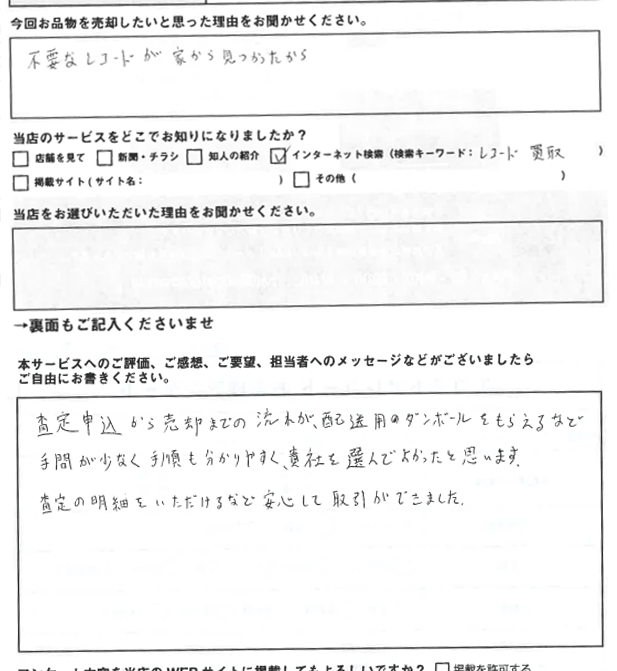 今回お品物を売却したいと思った理由をお聞かせください。
不要なレコードが家から見つかったから
当店のサービスをどこでお知りになりましたか?
□ 店舗を見て □ 新聞・チラシ □ 知人の紹介 ☑ インターネット検索(検索キーワード:レコード 買取 )
□ 掲載サイト(サイト名: ) □ その他( )
当店をお選びいただいた理由をお聞かせください。
→裏面もご記入くださいませ
本サービスへのご評価、ご感想、ご要望、担当者へのメッセージなどがございましたら
ご自由にお書きください。
査定申込から売却までの流れが、配送用のダンボールをもらえるなど
手間が少なく手順も分かりやすく、貴社を選んでよかったと思います。
査定の明細をいただけるなど安心して取引ができました。
アンケート内容を当店のWEBサイトに掲載してもよろしいですか? □ 掲載を許可する